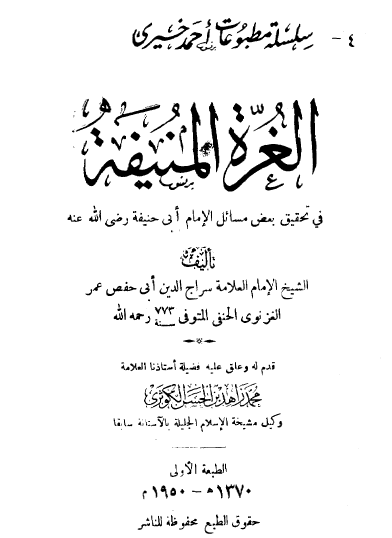 ٤ - سلسلة مطبوعات أحمد خيرى
الغُرّة المُنيفة
فى تحقيق بعض مسائل الإمام أبى حنيفة رضى الله عنه
تأليف
الشيخ الإمام العلامة سراج الدين أبى حفص عمر
الغزنوى الحنفى المتوفى سنة ٧٧٣ رحمه الله
قدم له وعلق عليه فضيلة أستاذنا العلامة
محمد زاهد بن الحسن الكوثرى
وكيل مشيخة الإسلام الجليلة بالآستانة سابقا
الطبعة الأولى
١٣٧٠ هـ - ١٩٥٠ م
حقوق الطبع محفوظة للناشر